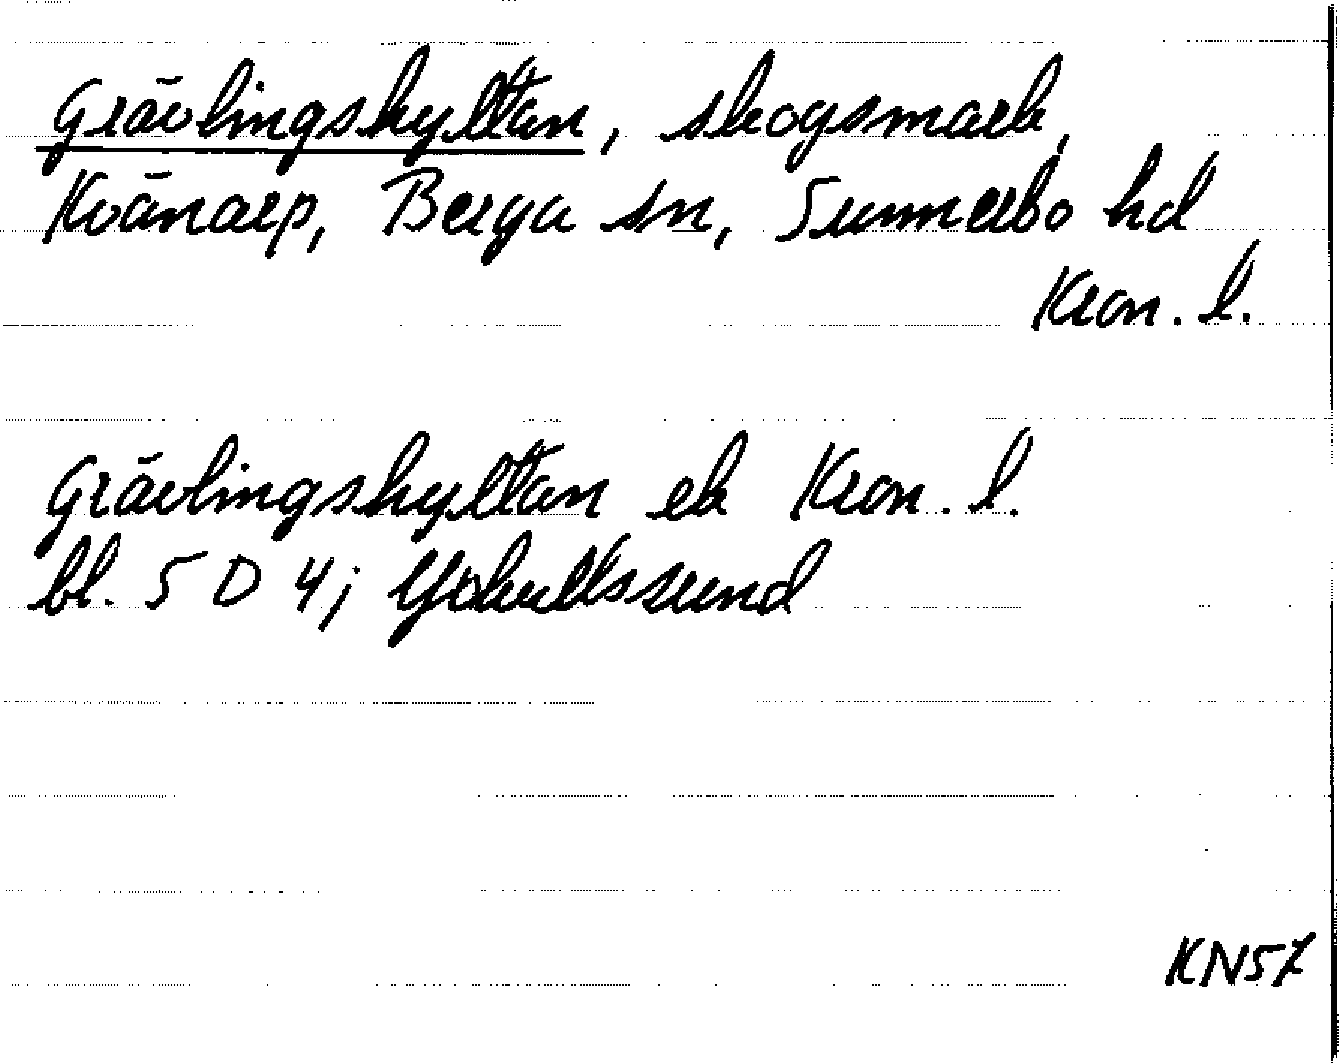 Grävlingshyltan, skogsmark,
Kvänarp, Berga sn, Sunnerbo hd
Kron. l.
Grävlingshyltan ek Kron. l.
bl. 5 D 4; Göhultssund
KN57